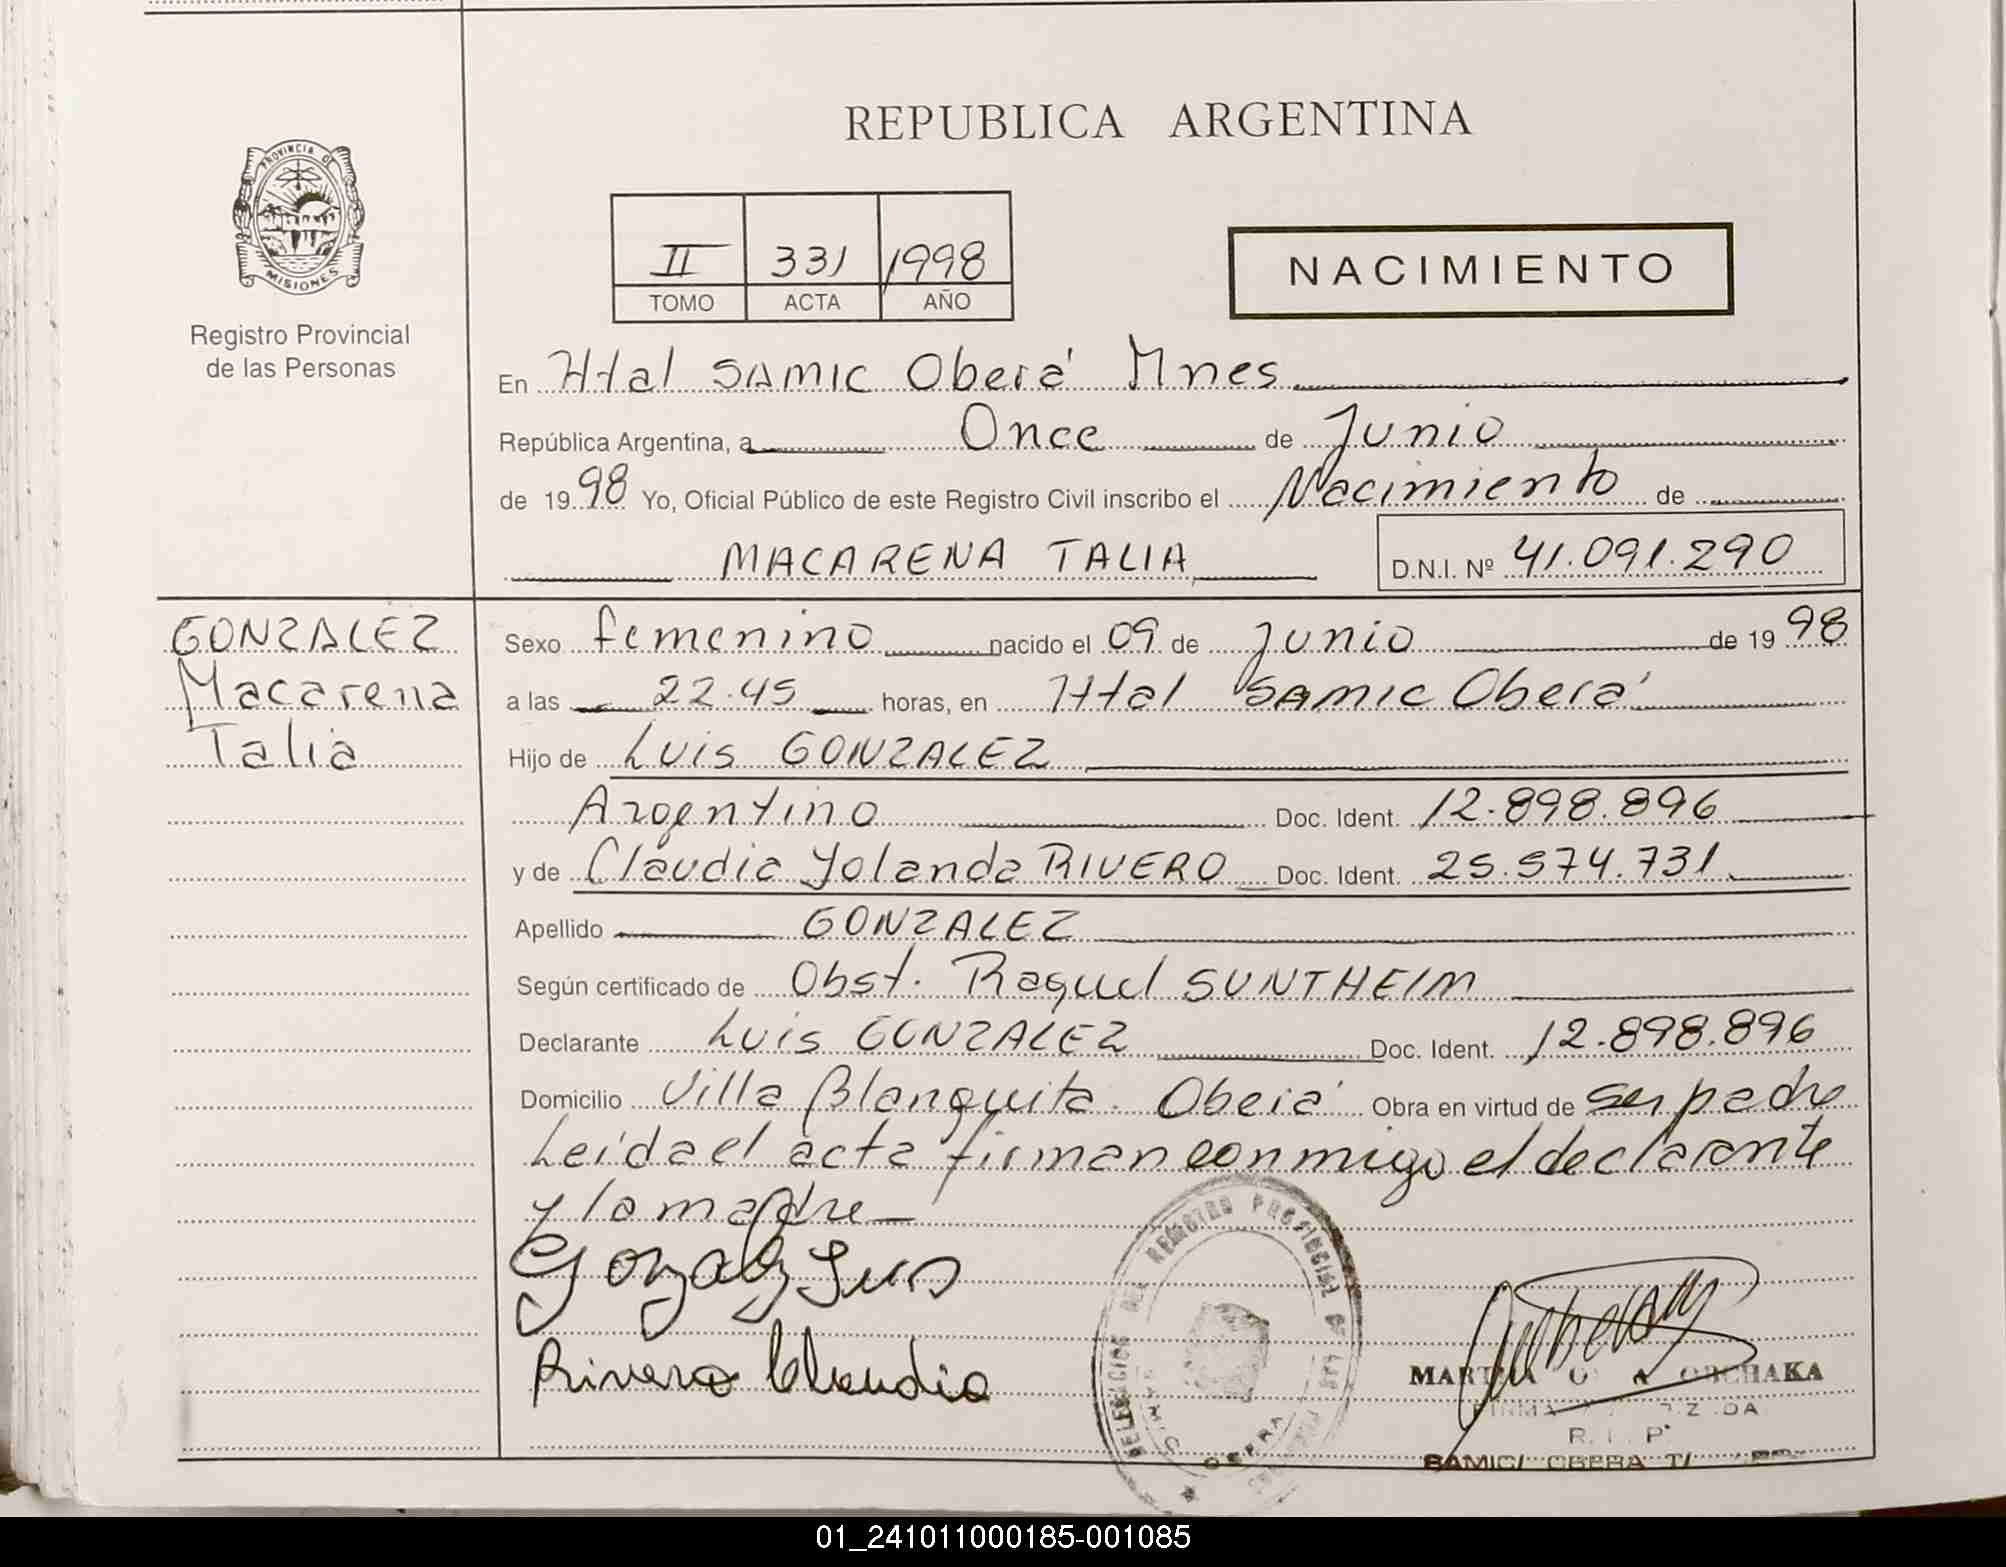 REPUBLICA ARGENTINA
PROVINCIA DE
MISIONES
Registro Provincial
de las Personas
II 331 1998
TOMO ACTA AÑO
NACIMIENTO
En Htal SAMIC Oberá Mnes
República Argentina, a Once de Junio
de 1998 Yo, Oficial Público de este Registro Civil inscribo el Nacimiento de
MACARENA TALIA D.N.I. Nº 41.091.290
GONZALEZ
Macarena
Talia
Sexo femenino nacido el 09 de Junio de 1998
a las 22.45 horas, en Htal SAMIC Oberá
Hijo de Luis GONZALEZ
Argentino Doc. Ident. 12.898.896
y de Claudia Yolanda RIVERO Doc. Ident. 25.574.731
Apellido GONZALEZ
Según certificado de Obst. Raquel SUNTHEIM
Declarante Luis GONZALEZ Doc. Ident. 12.898.896
Domicilio Villa Blanquita Oberá Obra en virtud de ser padre
Leída el acta firman conmigo el declarante
y la madre
Gonzalez Luis
Rivero Claudia
REGISTRO PROVINCIAL DE LAS
OBERA
MARTHA
R. P.
SAMIC/ OBERA
01_241011000185-001085